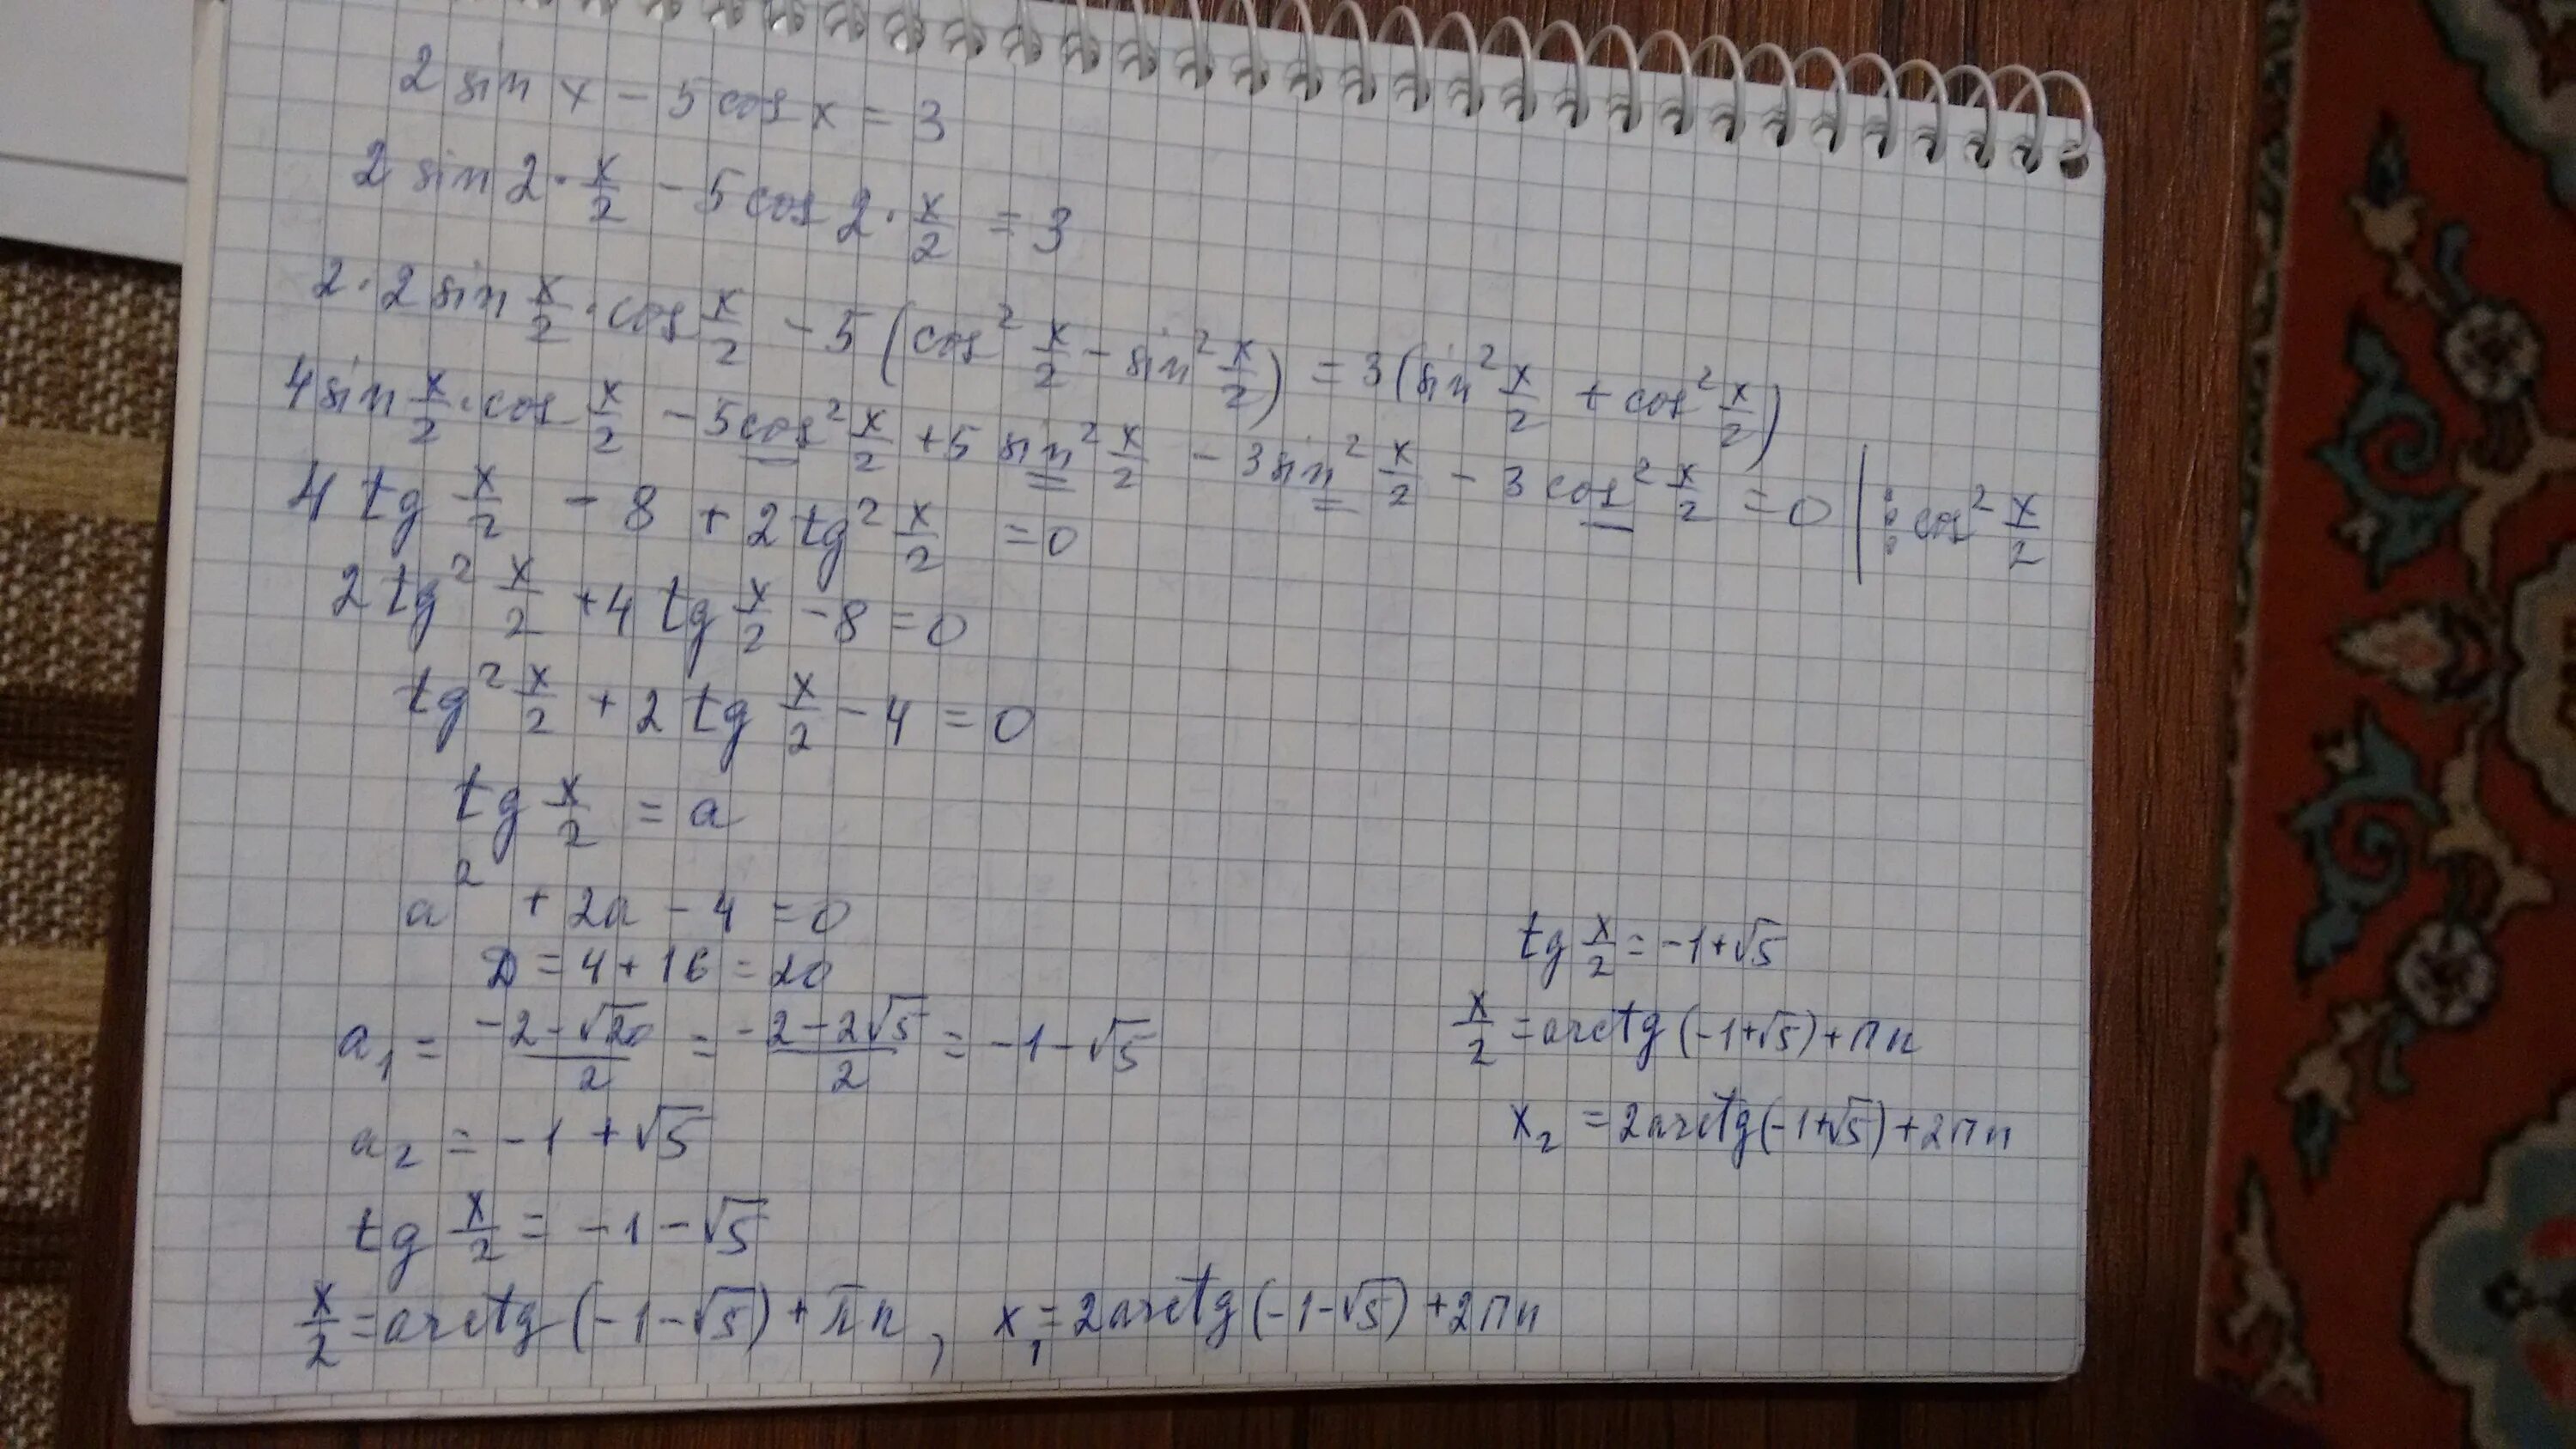 2 sin x − 5 cos x = 3
2 sin 2 · x/2 − 5 cos 2 · x/2 = 3
2 · 2 sin x/2 · cos x/2 − 5 (cos² x/2 − sin² x/2) = 3 (sin² x/2 + cos² x/2)
4 sin x/2 · cos x/2 − 5 cos² x/2 + 5 sin² x/2 − 3 sin² x/2 − 3 cos² x/2 = 0 | : cos² x/2
4 tg x/2 − 8 + 2 tg² x/2 = 0
2 tg² x/2 + 4 tg x/2 − 8 = 0
tg² x/2 + 2 tg x/2 − 4 = 0
tg x/2 = a
a² + 2a − 4 = 0
D = 4 + 16 = 20
a₁ = (−2 − √20)/2 = (−2 − 2√5)/2 = −1 − √5
a₂ = −1 + √5
tg x/2 = −1 − √5
x/2 = arctg (−1 − √5) + πn, x₁ = 2 arctg (−1 − √5) + 2πn
tg x/2 = −1 + √5
x/2 = arctg (−1 + √5) + πn
x₂ = 2 arctg (−1 + √5) + 2πn